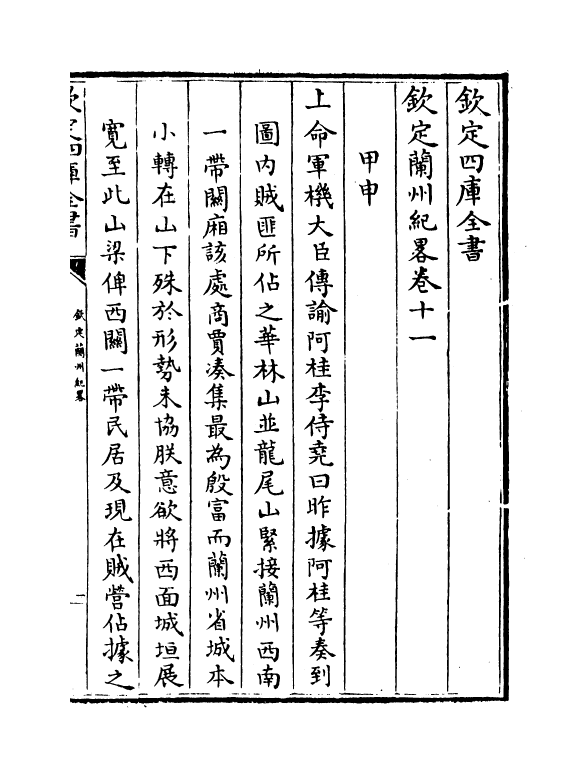 欽定四庫全書
欽定蘭州紀畧卷十一
甲申
上命軍機大臣傳諭阿桂李侍堯曰昨據阿桂等奏到
圖内賊匪所佔之華林山並龍尾山緊接蘭州西南
一帶關廂該處商賈凑集最為殷富而蘭州省城本
小轉在山下殊於形勢未協朕意欲將西面城垣展
寛至此山梁俾西關一帶民居及現在賊營佔據之
欽定四庫全書
欽定蘭州紀畧